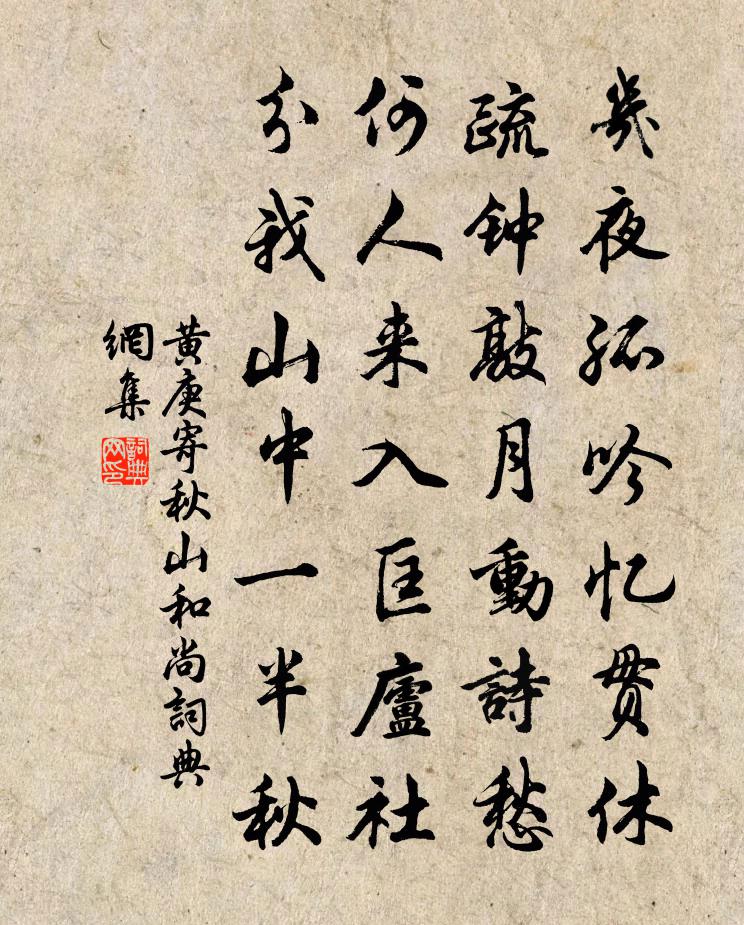 幾夜孤吟忆贯休
疏钟敲月動詩愁
何人来入匡廬社
分我山中一半秋
黄庚寄秋山和尚詞典
網集
詞典网印